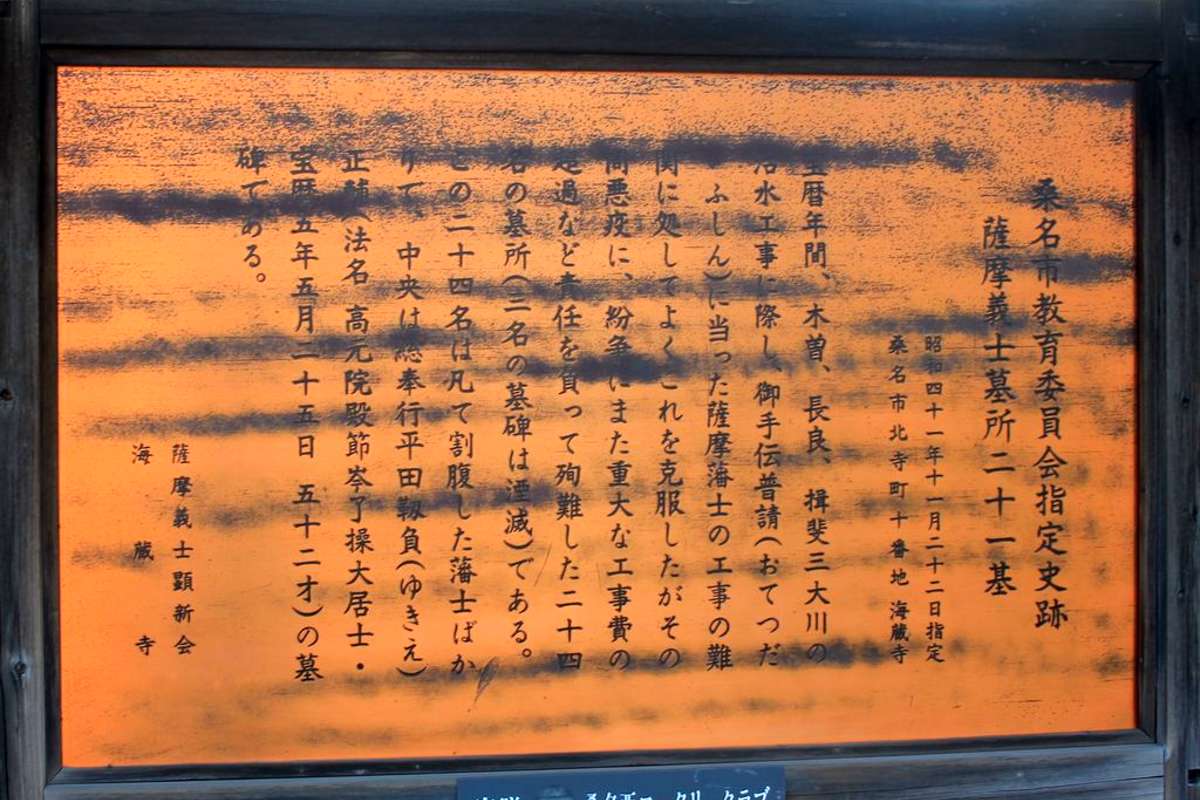 桑名市教育委員会指定史跡
薩摩義士墓所二十一基
昭和四十一年十一月二十二日指定
桑名市北寺町十番地海蔵寺
宝暦年間、木曽、長良、揖斐三大川の
治水工事に際し、御手伝普請(おてつだ
ふしん)に当った薩摩藩士の工事の難
関に処してよくこれを克服したがその
間悪疫に、紛争にまた重大な工事費の
超過など責任を負って殉難した二十四
名の墓所(三名の墓碑は湮滅)である。
この二十四名は凡て割腹した藩士ばか
りて、中央は総奉行平田靱負(ゆきえ)
正輔(法名 高元院殿節岑了操大居士・
宝暦五年五月二十五日 五十二才)の墓
碑である。
薩摩義士顕新会
海蔵寺
クラブ